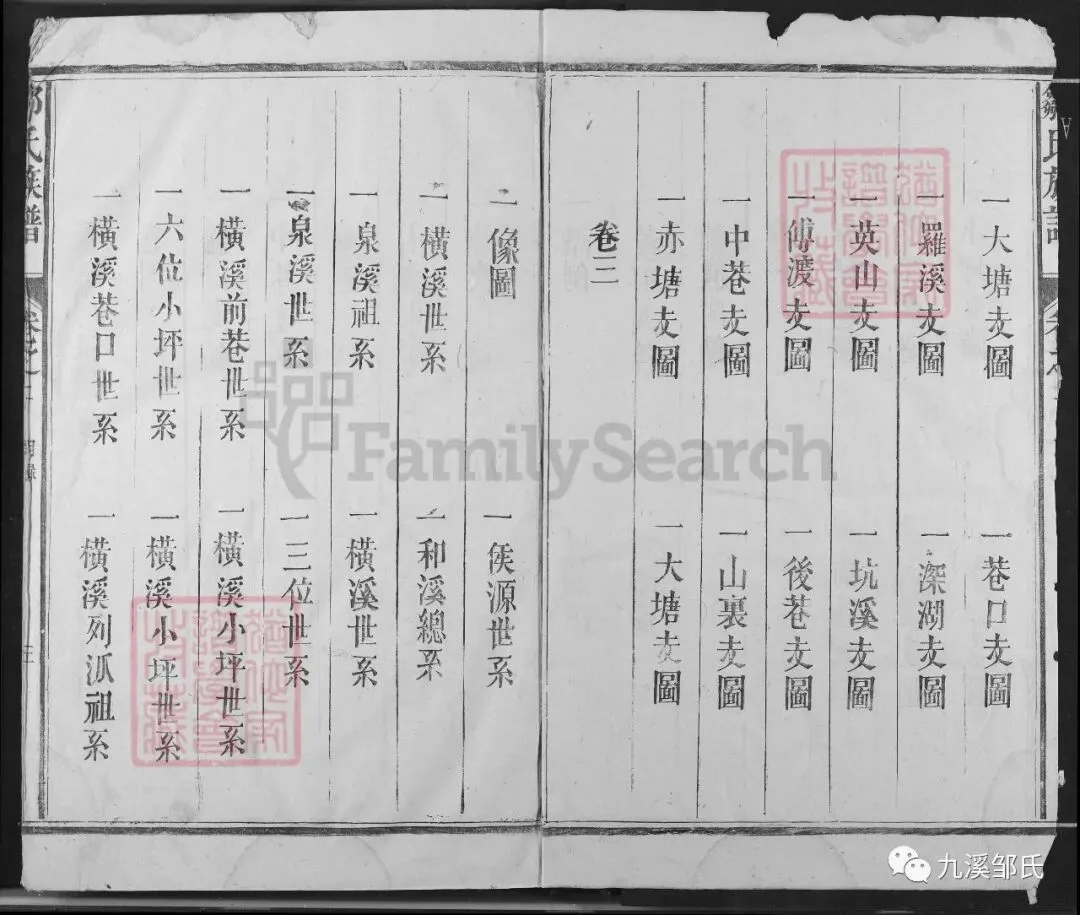 鄒氏族譜
一大塘支圖
一巷口支圖
一羅溪支圖
一深湖支圖
一英山支圖
一坑溪支圖
一傅渡支圖
一後巷支圖
一中巷支圖
一山裏支圖
一赤塘支圖
一大塘支圖
卷三
一像圖
一侯源世系
一橫溪世系
一和溪總系
一泉溪祖系
一橫溪世系
一泉溪世系
一三位世系
一橫溪前巷世系
一橫溪小坪世系
一六位小坪世系
一橫溪小坪世系
一橫溪巷口世系
一橫溪列派祖系
鄒氏族譜
目錄
FamilySearch
九溪邹氏